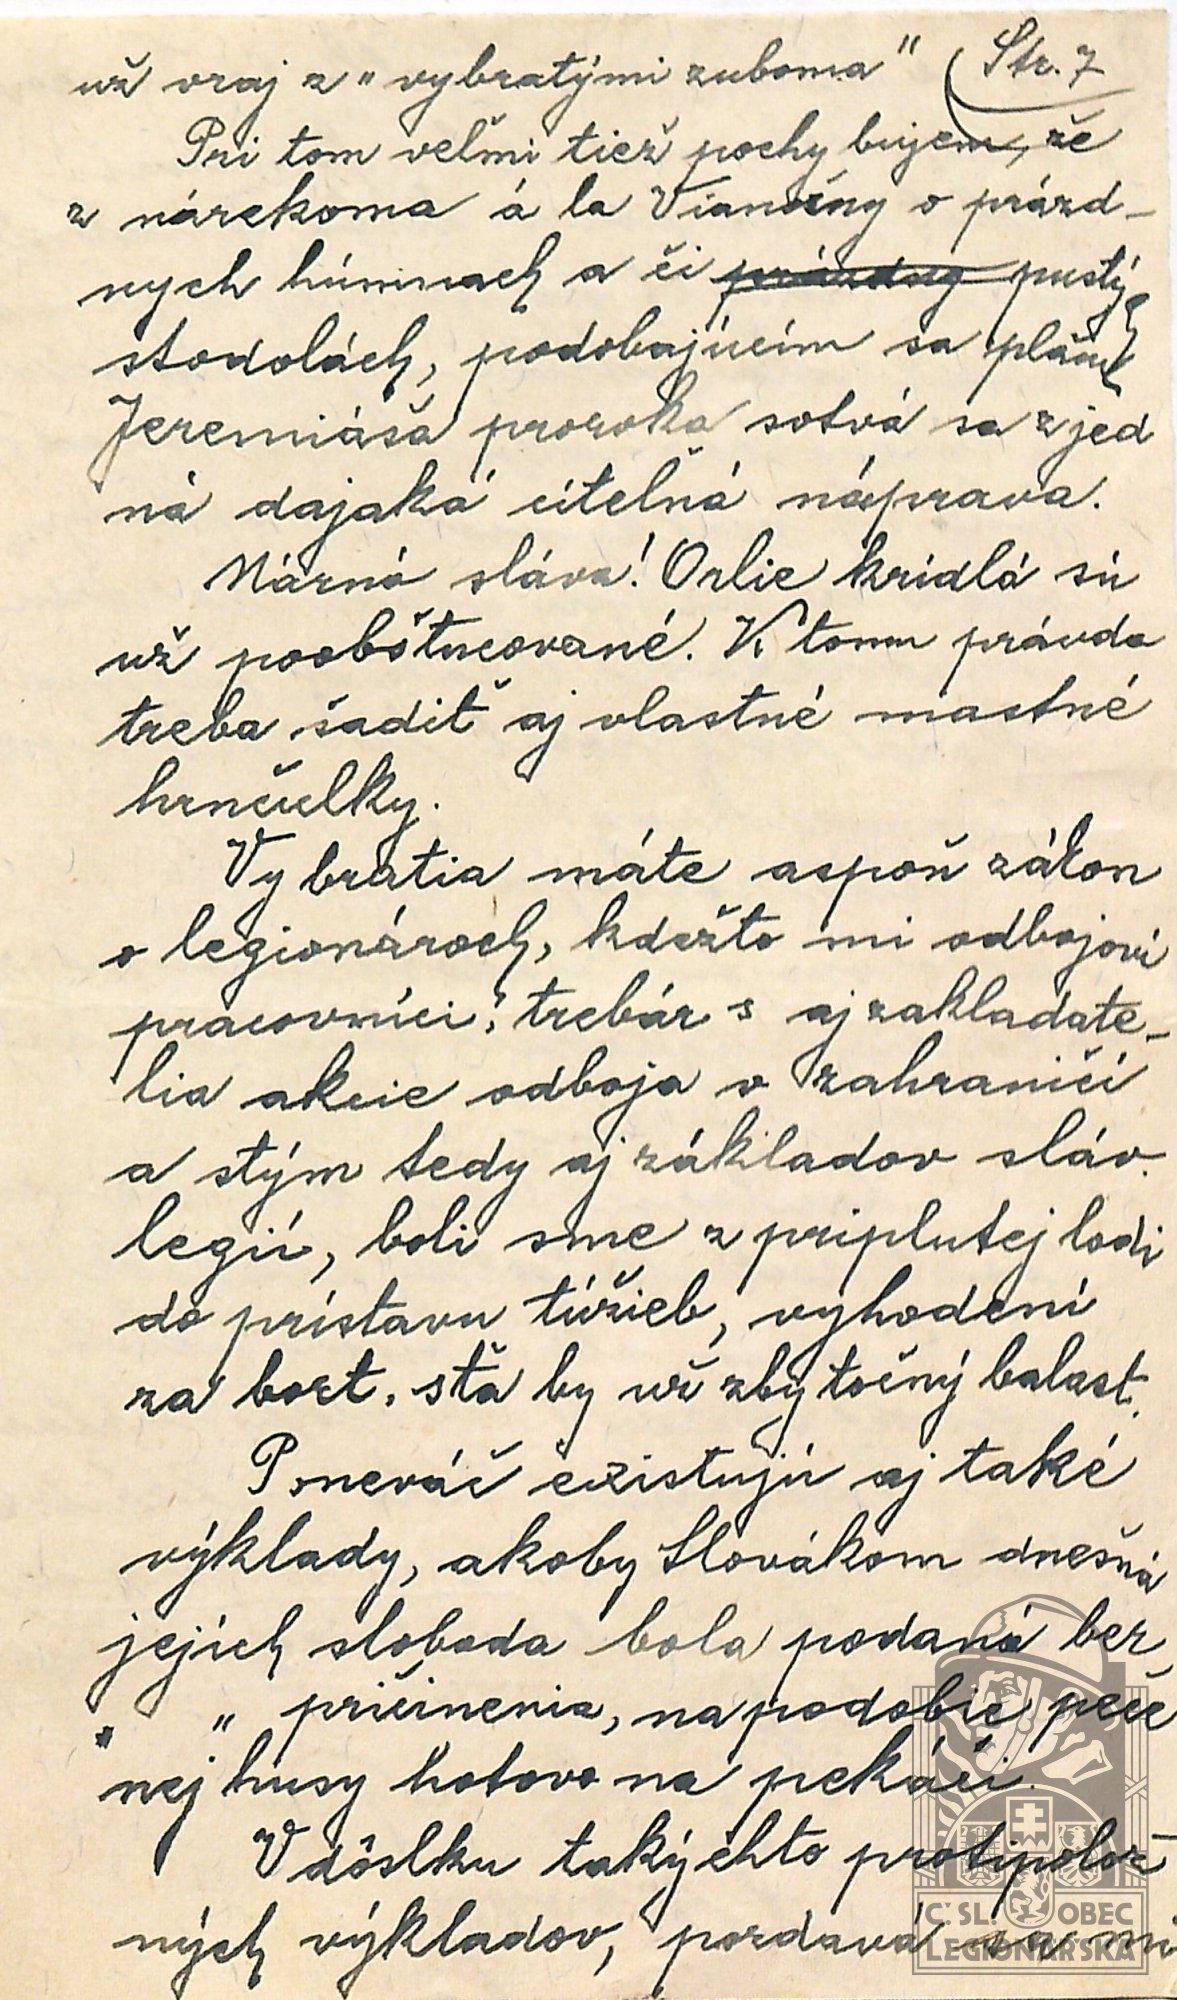 už vraj z „ vybratými zuboma " Str. 7
Pri tom veľmi tiež pochybujem, že
z nárekoma á la Vianočny o prázd-
nych húmnach a či prázdny pustých
stodolách, podobajúcim sa plaču
Jeremiáša proroka sotvá sa zjed
ná dajaká citeľná náprava.
Márna sláva! Orlie kridlá sú
už poobštucované. K tomu právda
treba šadiť aj vlastné mastné
hrnčielky.
Vy bratia máte aspoň zákon
o legionároch, kdežto mi odbojoví
pracovníci, trebár s aj zakladate-
lia akcie odboja v zahraničí
a stým tedy aj základov sláv.
legií, boli sme z priplutej lodi
do prístavu túžieb, vyhodení
za bort, sťa by už zbytočný balast.
Poneváč existujú aj také
výklady, akoby Slovákom dnešná
jejich sloboda bola podaná bez
" pričinenia, na podobie peče
nej husy hotovo na pekáči.
V dôslku takýchto protipolož-
ných výkladov, pozdavá sa mi
Č SL. OBEC
LEGIONÁŘSKÁ